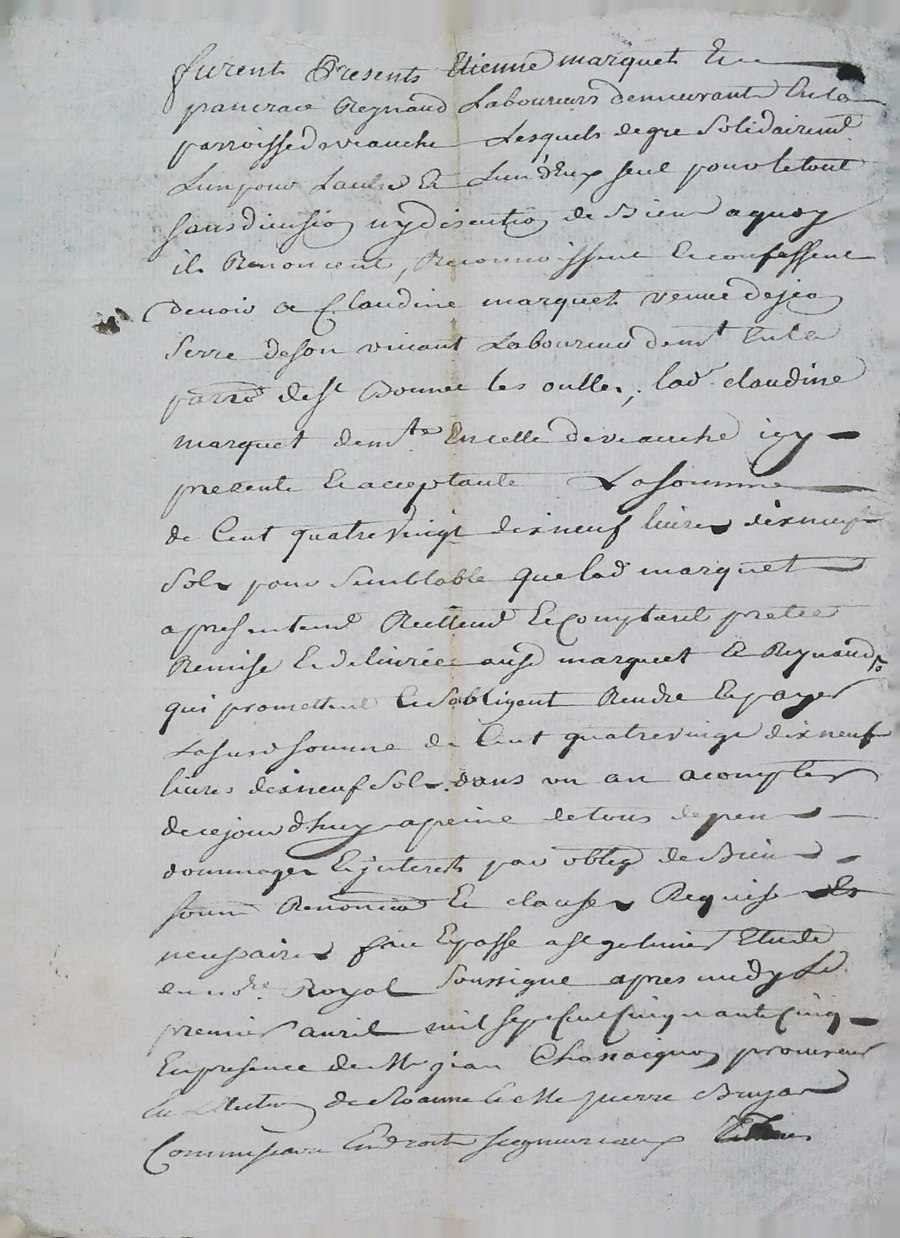 furent Presents Etienne marquet Et
pancrace Reynaud Laboureurs demeurants En la
parroisse de veauche Lesquels de gre Solidairemt
Lun pour Lautre Et Lun d'Eux seul pour le tout
sans division ny discution de Biens a quoy
ils Renoncent, Reconnoissent Et confessent
devoir a Claudine marquet veuve de jean
Serre de son vivant Laboureur demt En la
parro de st Bonnet les oulles, lad. claudine
marquet demte En celle de veauche icy
presente Et acceptante La somme
de Cent quatre vingt dix neuf livres dix neuf
Sols pour semblable que lad marquet
a presentemt Reellemt Et Comptant pretée
Remise Et delivrée ausd marquet Et Reynaud
qui promettent Et sobligent Rendre Et payer
La susd somme de Cent quatre vingt dix neuf
livres dix neuf Sols dans un an a compter
de ce jour d'huy a peine de tous depens
dommages Et interets par oblig de Biens
soum Renoncia Et clauses Requises Et
necessaires fait Et passe a st galmier Etude
du nore Royal Soussigne apres midy Le
premier avril mil sept cent Cinquante Cinq
En presence de Me jean Chassaignon procureur
En L'Election de Roanne Et Me pierre Bruyas
Commissaire En droits seigneuriaux